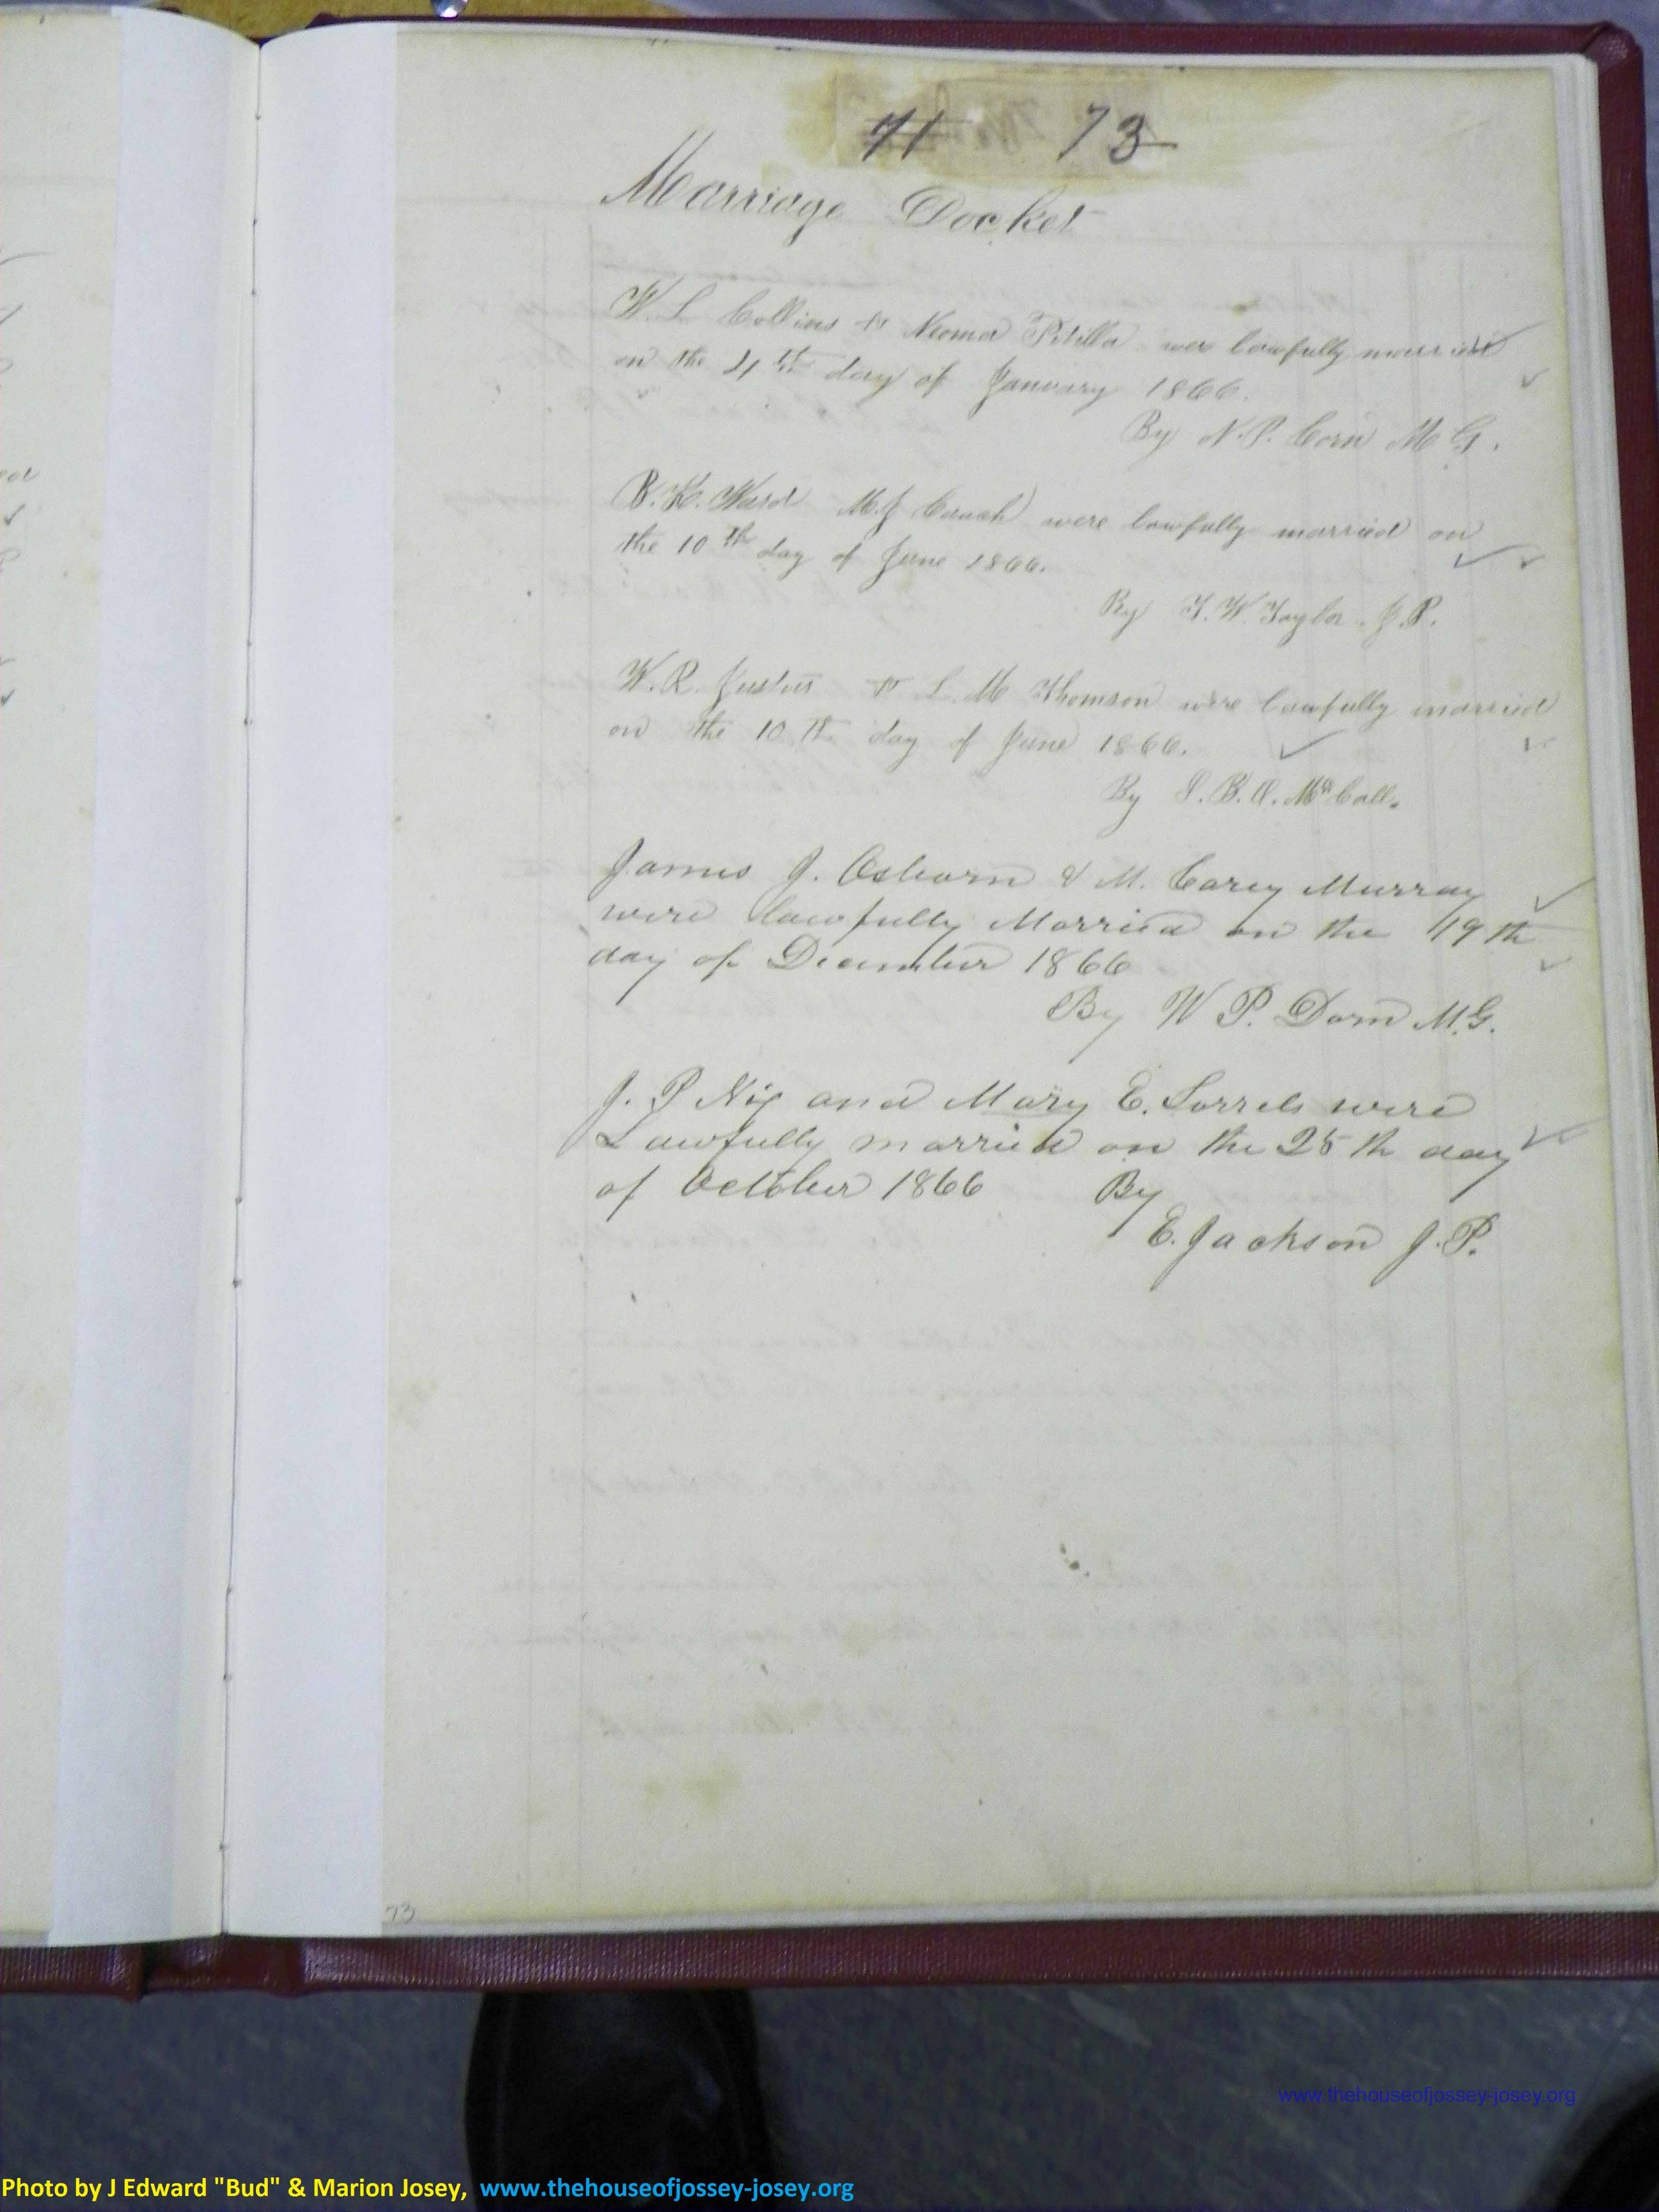 71 73
Marriage Docket
W. L Collins & Neoma Pitilla were lawfully married
on the 4th day of January 1866.
By N. P. Corn M G.
B. K. Ward M. J Couch were lawfully married on
the 10th day of June 1866.
By T. W. Taylor J. P.
W. R. Justus & L. M Thomson were lawfully married
on the 10 th day of June 1866.
By J. B. A. McCall.
James J. Osborn & M. Carey Murray
were lawfully Married on the 19 th
day of December 1866
By W P. Dorn M. G.
J. P Nix and Mary E. Sorrels were
Lawfully married on the 25 th day
of October 1866 By
E. Jackson J. P.
73
www.thehouseofjossey-josey.org
Photo by J Edward "Bud" & Marion Josey, www.thehouseofjossey-josey.org